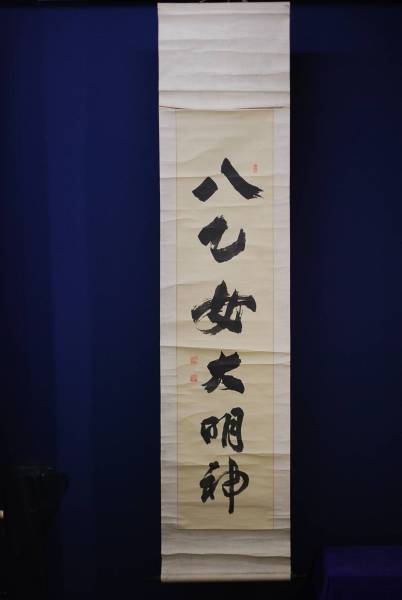 八乙女大明神